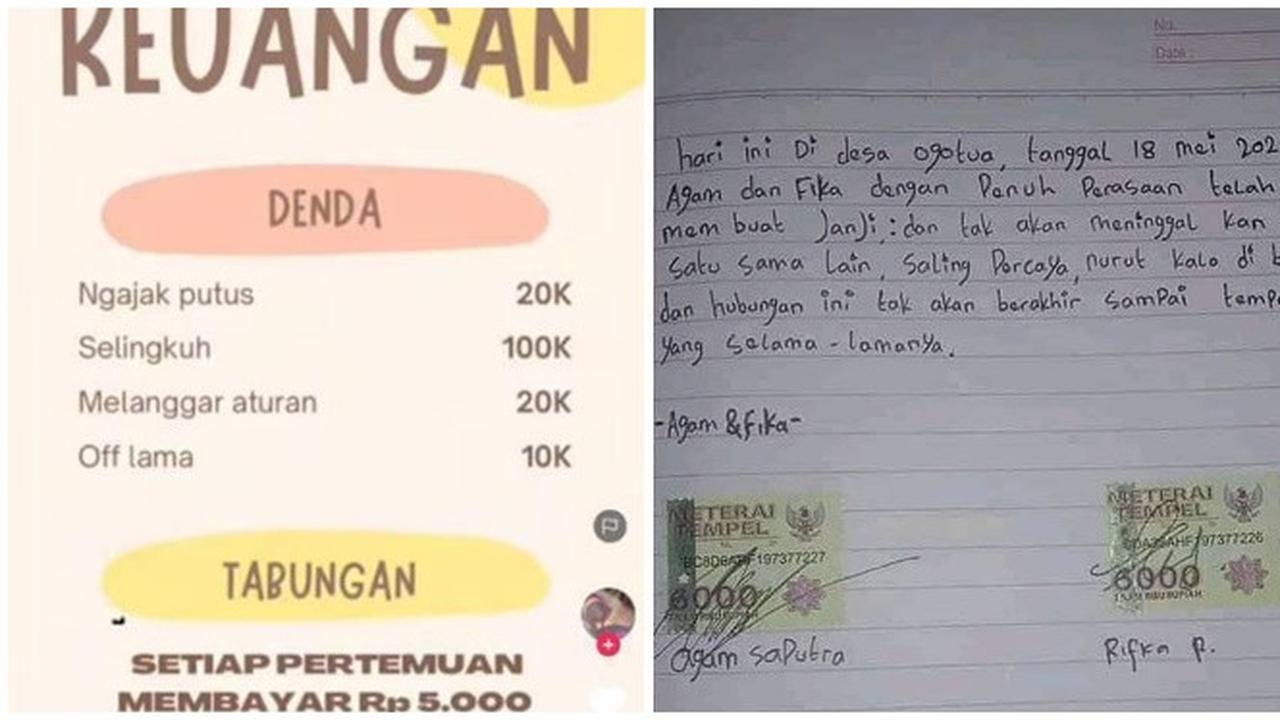 KEUANGAN
DENDA
Ngajak putus 20K
Selingkuh 100K
Melanggar aturan 20K
Off lama 10K
TABUNGAN
SETIAP PERTEMUAN
MEMBAYAR Rp 5.000
No.
Date :
hari ini Di desa ogotua, tanggal 18 mei 202
Agam dan Fika dengan Penuh Perasaan telah
mem buat JanJi : dan tak akan meninggal kan
satu sama Lain, Saling Percaya, nurut kalo di
dan hubungan ini tak akan berakhir Sampai
yang selama-lamanya.
-Agam & Fika-
METERAI
TEMPEL
197377227
6000
METERAI
TEMPEL
197377226
6000
ENAM RIBU RUPIAH
agam saputra
Rifka P.